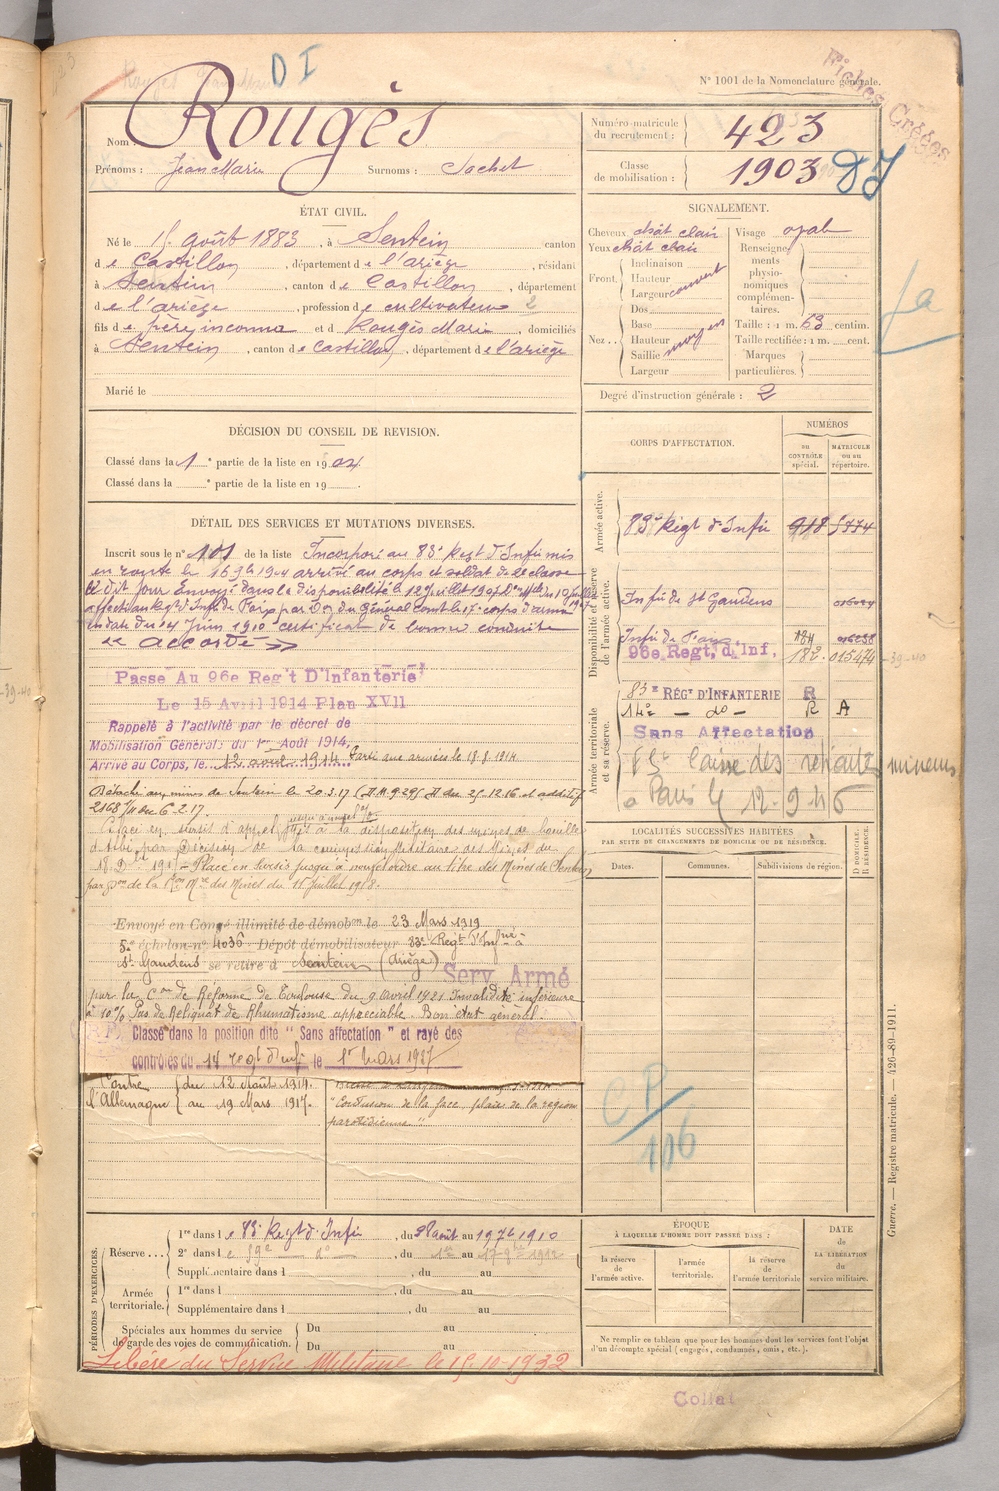 D I
N° 1001 de la Nomenclature générale.
Fiches Créées
Nom : Rougès
Prénoms : Jean Marie Surnoms : Sachet
Numéro matricule du recrutement : 423
Classe de mobilisation : 1903
ÉTAT CIVIL.
Né le 15 Août 1883, à Sentein canton
de Castillon, département de l'ariège, résidant
à Sentein, canton de Castillon, département
de l'ariège, profession de cultivateur 2
fils de père inconnu et de Rougès Marie, domiciliés
à Sentein, canton de Castillon, département de l'ariège
Marié le
SIGNALEMENT.
Cheveux chât clair
Yeux chât clair
Front. Inclinaison
Hauteur
Largeur couvert
Nez... Dos
Base
Hauteur moyen
Saillie
Largeur
Visage oval
Renseignements physionomiques complémentaires.
Taille : 1 m. 63 centim.
Taille rectifiée : 1 m. cent.
Marques particulières.
Degré d'instruction générale : 2
DÉCISION DU CONSEIL DE REVISION.
Classé dans la 1 e partie de la liste en 1904
Classé dans la e partie de la liste en 19
DÉTAIL DES SERVICES ET MUTATIONS DIVERSES.
Inscrit sous le n° 101 de la liste Incorporé au 83e Regt d'Infie mis
en route le 16 9bre 1904 arrivé au corps et soldat de 2e classe
le dit jour Envoyé dans la disponibilité le 12 juillet 1907
affecté au Regt d'Infie de Foix par Don du Général Comt le 17e corps d'armée
en date du 14 Juin 1910 certificat de bonne conduite
"accordé"
Passé Au 96e Reg't D'Infanterie
Le 15 Avril 1914 Plan XVII
Rappelé à l'activité par le décret de
Mobilisation Générale du 1er Août 1914.
Arrivé au Corps, le 12 août 1914 Parti aux armées le 18.8.1914
Détaché aux mines de Sentein le 20.3.17 (D.M. 9.29) D du 25-12.16 et additif
2168 I/11 du 6.2.17.
Placé en sursis d'appel à la disposition des mines de houille
d'Albi par Décision de la commission Militaire des Mines du
18. Dbre 1917 - Placé en sursis jusqu'à nouvel ordre au titre des Mines de Sentein
par Don de la Con Mre des Mines du 15 juillet 1918.
Envoyé en Congé illimité de démobon le 23 Mars 1919
5e échelon n° 4036 Dépôt démobilisateur 83e Regt d'Infrie à
St Gaudens se retire à Sentein (Ariège)
Serv. Armé
par la Con de Réforme de Toulouse du 9 avril 1921 Invalidité inférieure
à 10% Pas de Reliquat de Rhumatisme appréciable. Bon état général
Classé dans la position dité "Sans affectation" et rayé des
contrôles du 14 regt d'inf. le 1er Mars 1927
Contre l'Allemagne du 12 Août 1914.
au 19 Mars 1917.
"Contusion de la face plaie de la région
parotidienne"
CORPS D'AFFECTATION.
NUMÉROS
DU CONTRÔLE spécial.
MATRICULE ou au répertoire.
Armée active.
83e Regt d'Infie 918 5774
Disponibilité et réserve de l'armée active.
Infie de St Gaudens 016094
Infie de Foix 184 016238
96e Regt, d'Inf. 182 015474
Armée territoriale et sa réserve.
83e RÉGt D'INFANTERIE R
14e - do - R A
Sans Affectation
caisse des retraites mineurs
à Paris le 12-9-46
LOCALITÉS SUCCESSIVES HABITÉES
PAR SUITE DE CHANGEMENTS DE DOMICILE OU DE RÉSIDENCE.
Dates. Communes. Subdivisions de région. D. DOMICILE. R. RÉSIDENCE.
CP/106
PÉRIODES D'EXERCICES.
Réserve... 1re dans le 83e Regt d'Infie, du août au 1910
2e dans le 59e do, du 1er au 17 9bre 1912
Supplémentaire dans l , du au
Armée territoriale. 1re dans l , du au
Supplémentaire dans l , du au
Spéciales aux hommes du service de garde des voies de communication. Du au
Du au
Libéré du Service Militaire le 15-10-1932
ÉPOQUE
À LAQUELLE L'HOMME DOIT PASSER DANS :
la réserve de l'armée active.
l'armée territoriale.
la réserve de l'armée territoriale
DATE de LA LIBÉRATION du service militaire.
Ne remplir ce tableau que pour les hommes dont les services font l'objet
d'un décompte spécial (engagés, condamnés, omis, etc.).
Guerre. — Registre matricule. — 420-89-1911.
Collat